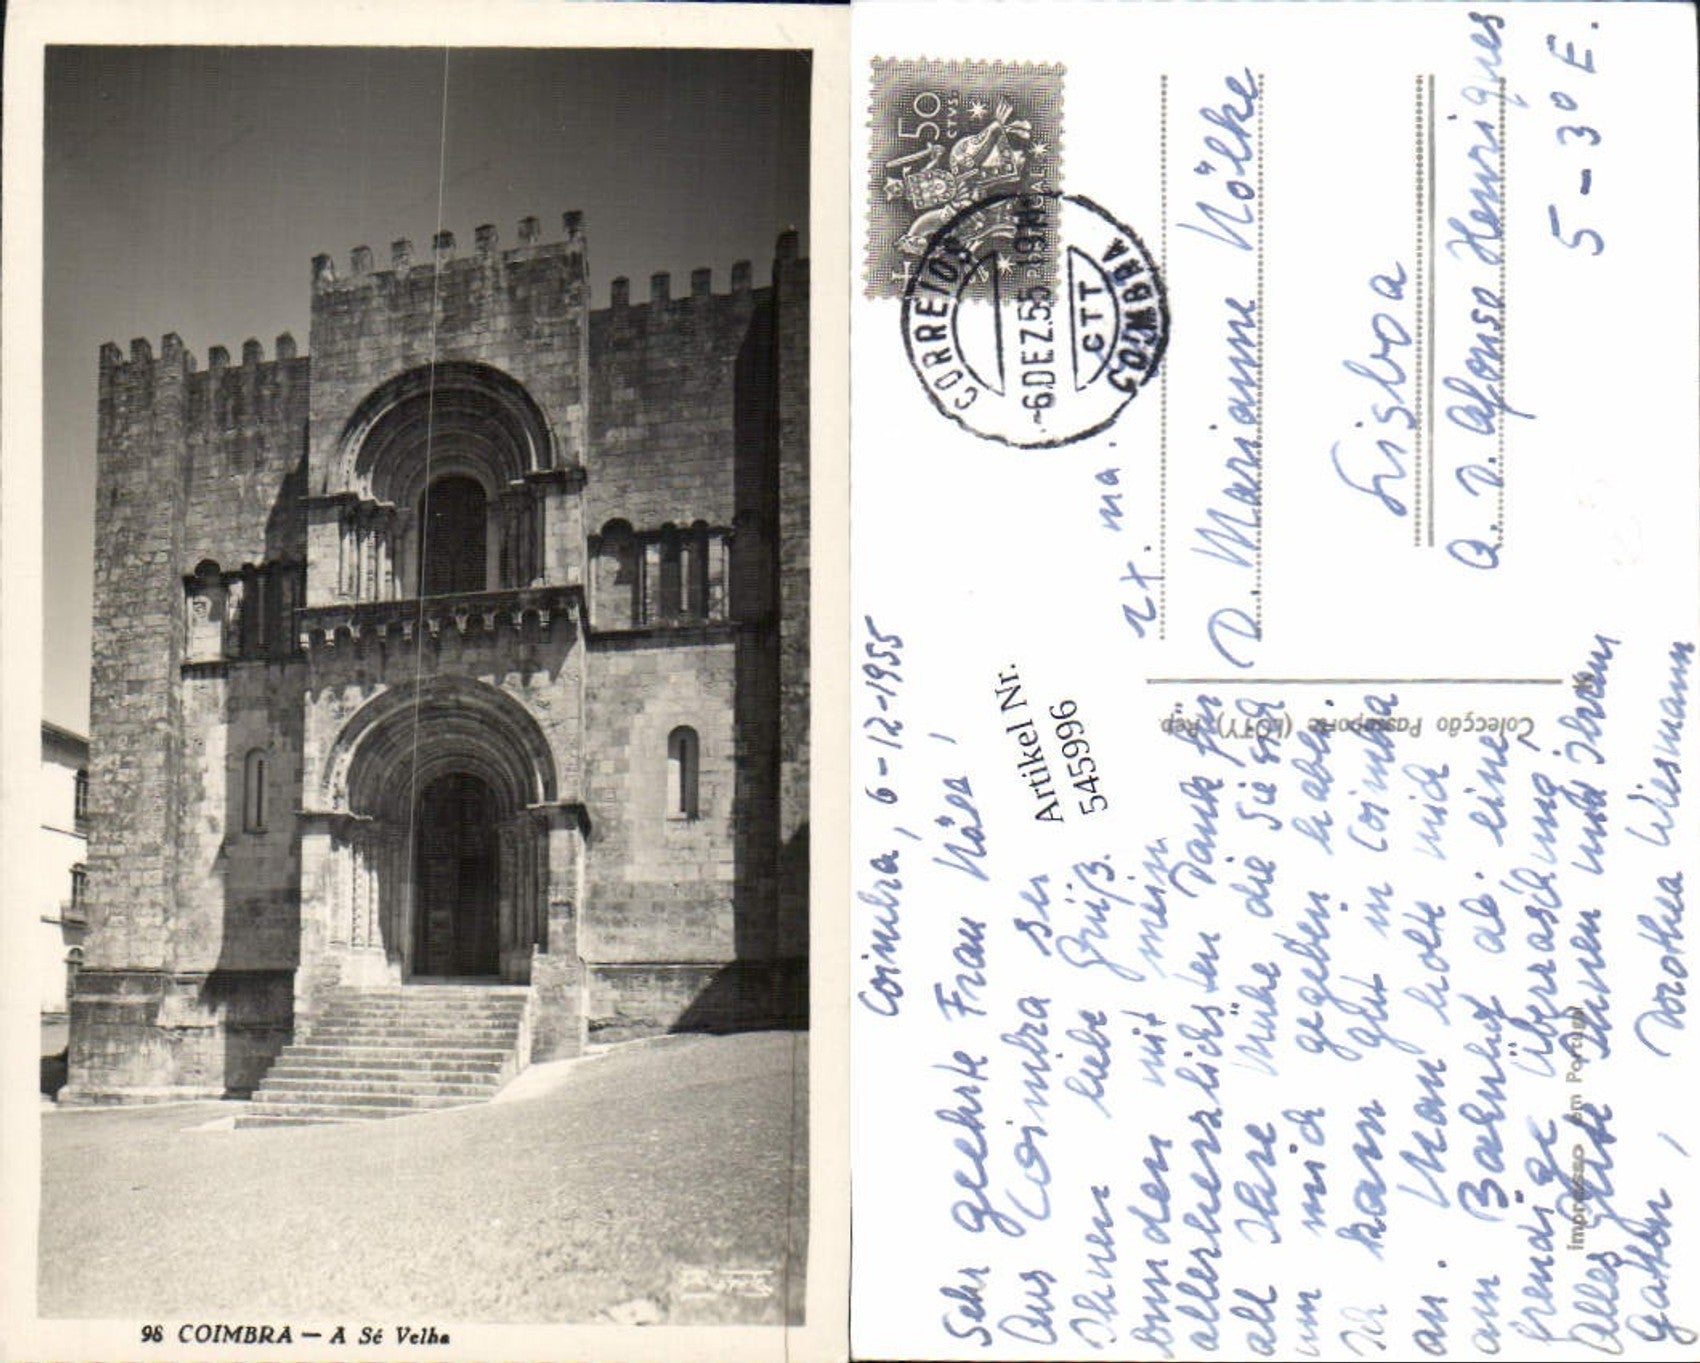 98 COIMBRA — A Sé Velha
50
CTVS.
CORREIOS
-6.DEZ.55
CTT
COIMBRA
Coimbra, 6-12-1955
Sehr geehrte Frau
Aus Coimbra sei
Ihnen liebe Grüß.
mit mein
allerherzlichsten Dank für
all Ihre Mühe die Sie sich
um mich gegeben haben.
Ich kam gut in Coimbra
an. Man holte mich
am Bahnhof ab. eine
freudige Überraschung!
Alles Gute Ihnen und Ihrem
Gatten, Dorothea Wiesmann
Artikel Nr.
545996
Colecção Passaporte (LOTY) Rep.
Impresso em Portugal
D. Marianne Nölke
Lisboa
A. D. Afonso Henriques
5-3º E.